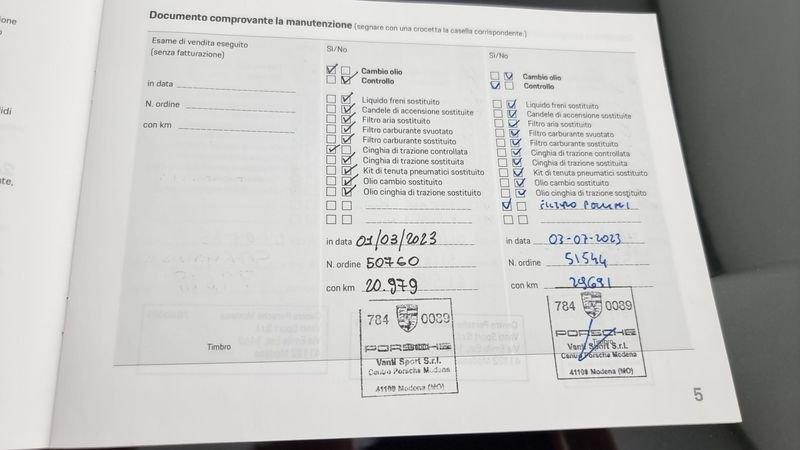 Documento comprovante la manutenzione (segnare con una crocetta la casella corrispondente.)
Esame di vendita eseguito
(senza fatturazione)
in data
N. ordine
con km
Timbro
Sì/No
Cambio olio
Controllo
Liquido freni sostituito
Candele di accensione sostituite
Filtro aria sostituito
Filtro carburante svuotato
Filtro carburante sostituito
Cinghia di trazione controllata
Cinghia di trazione sostituita
Kit di tenuta pneumatici sostituito
Olio cambio sostituito
Olio cinghia di trazione sostituito
in data 01/03/2023
N. ordine 50760
con km 20.979
784 0089
PORSCHE
Vanti Sport S.r.l.
Centro Porsche Modena
41100 Modena (MO)
Sì/No
Cambio olio
Controllo
Liquido freni sostituito
Candele di accensione sostituite
Filtro aria sostituito
Filtro carburante svuotato
Filtro carburante sostituito
Cinghia di trazione controllata
Cinghia di trazione sostituita
Kit di tenuta pneumatici sostituito
Olio cambio sostituito
Olio cinghia di trazione sostituito
FILTRO POLLINI
in data 03-07-2023
N. ordine 51544
con km 29691
784 0089
PORSCHE
Timbro
Sport S.r.l.
Centro Porsche Modena
41100 Modena (MO)
5